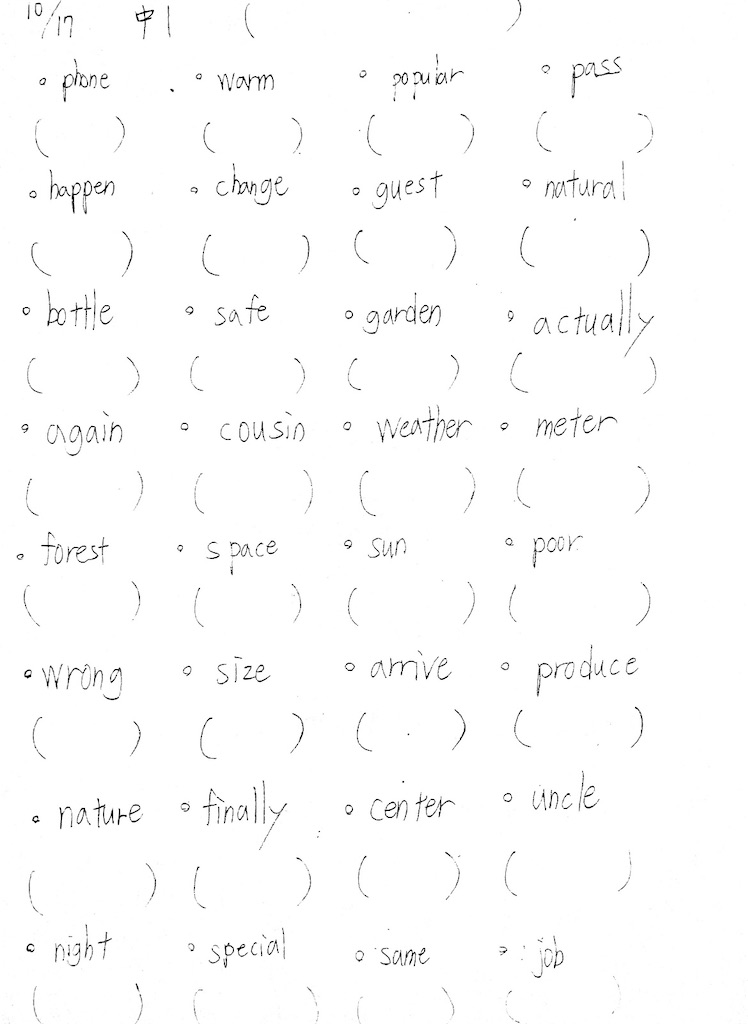 10/17 中1 ( )
。phone 。warm 。popular 。pass
( ) ( ) ( ) ( )
。happen 。change 。guest 。natural
( ) ( ) ( ) ( )
。bottle 。safe 。garden 。actually
( ) ( ) ( ) ( )
。again 。cousin 。weather 。meter
( ) ( ) ( ) ( )
。forest 。space 。sun 。poor
( ) ( ) ( ) ( )
。wrong 。size 。arrive 。produce
( ) ( ) ( ) ( )
。nature 。finally 。center 。uncle
( ) ( ) ( ) ( )
。night 。special 。same 。job
( ) ( ) ( ) ( )